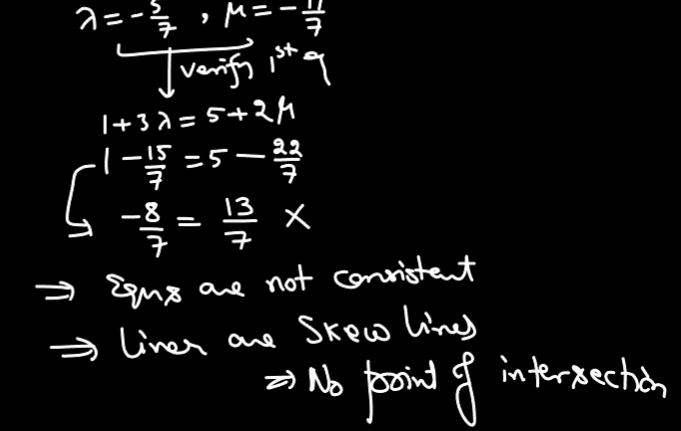 λ = -5/7 , μ = -11/7
verify 1st eq
1+3λ = 5+2μ
1 - 15/7 = 5 - 22/7
-8/7 = 13/7 ×
⇒ Eqns are not consistent
⇒ Lines are Skew lines
⇒ No point of intersection